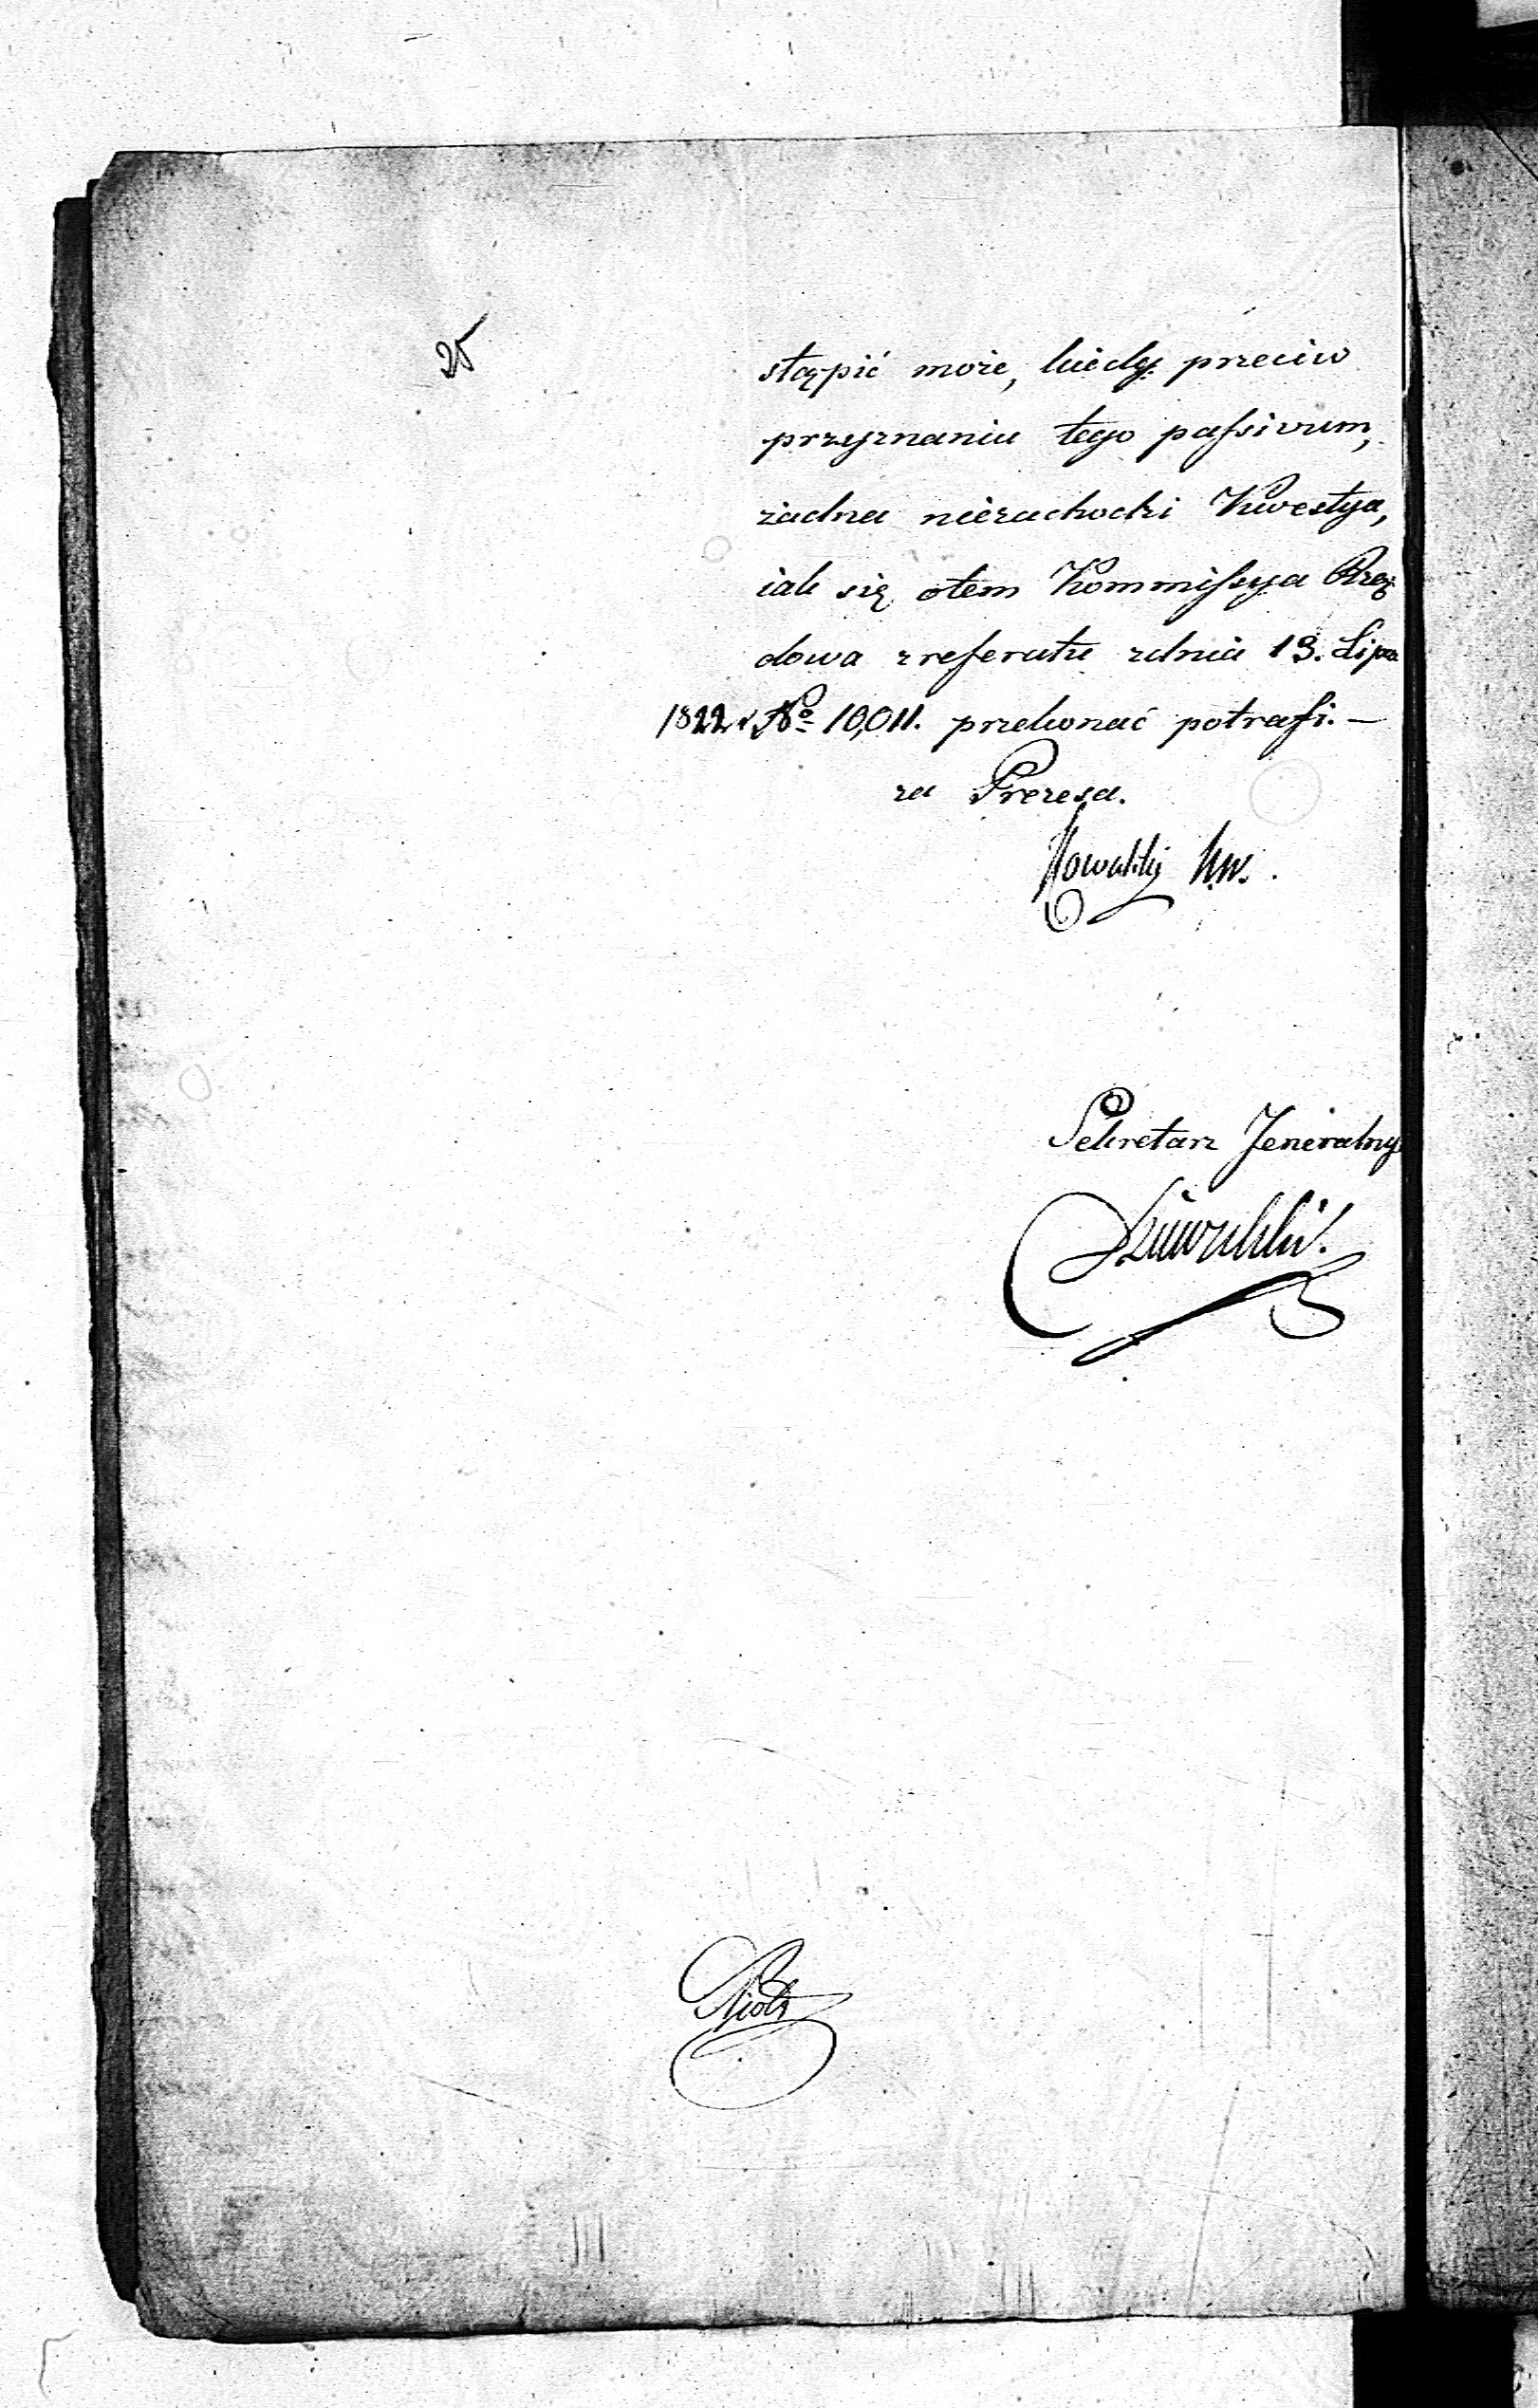 25
stąpić może, kiedy przeciw
przyznaniu tego passivum,
żadna niezachodzi Kwestya,
iak się otem Kommissya Rzą
dowa zreferatu zdnia 13. Lipca
1822 r. No 10,011. przekonać potrafi. —
za Prezesa.
Sekretarz Jeneralny
Piotr